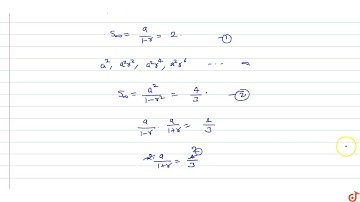 S∞ = a/1-r = 2. —①
a², a²r², a²r⁴, a²r⁶ ... ∞
S∞ = a²/1-r² = 4/3. —②
a/1-r . a/1+r = 4/3
2.a/1+r = 4 2/3